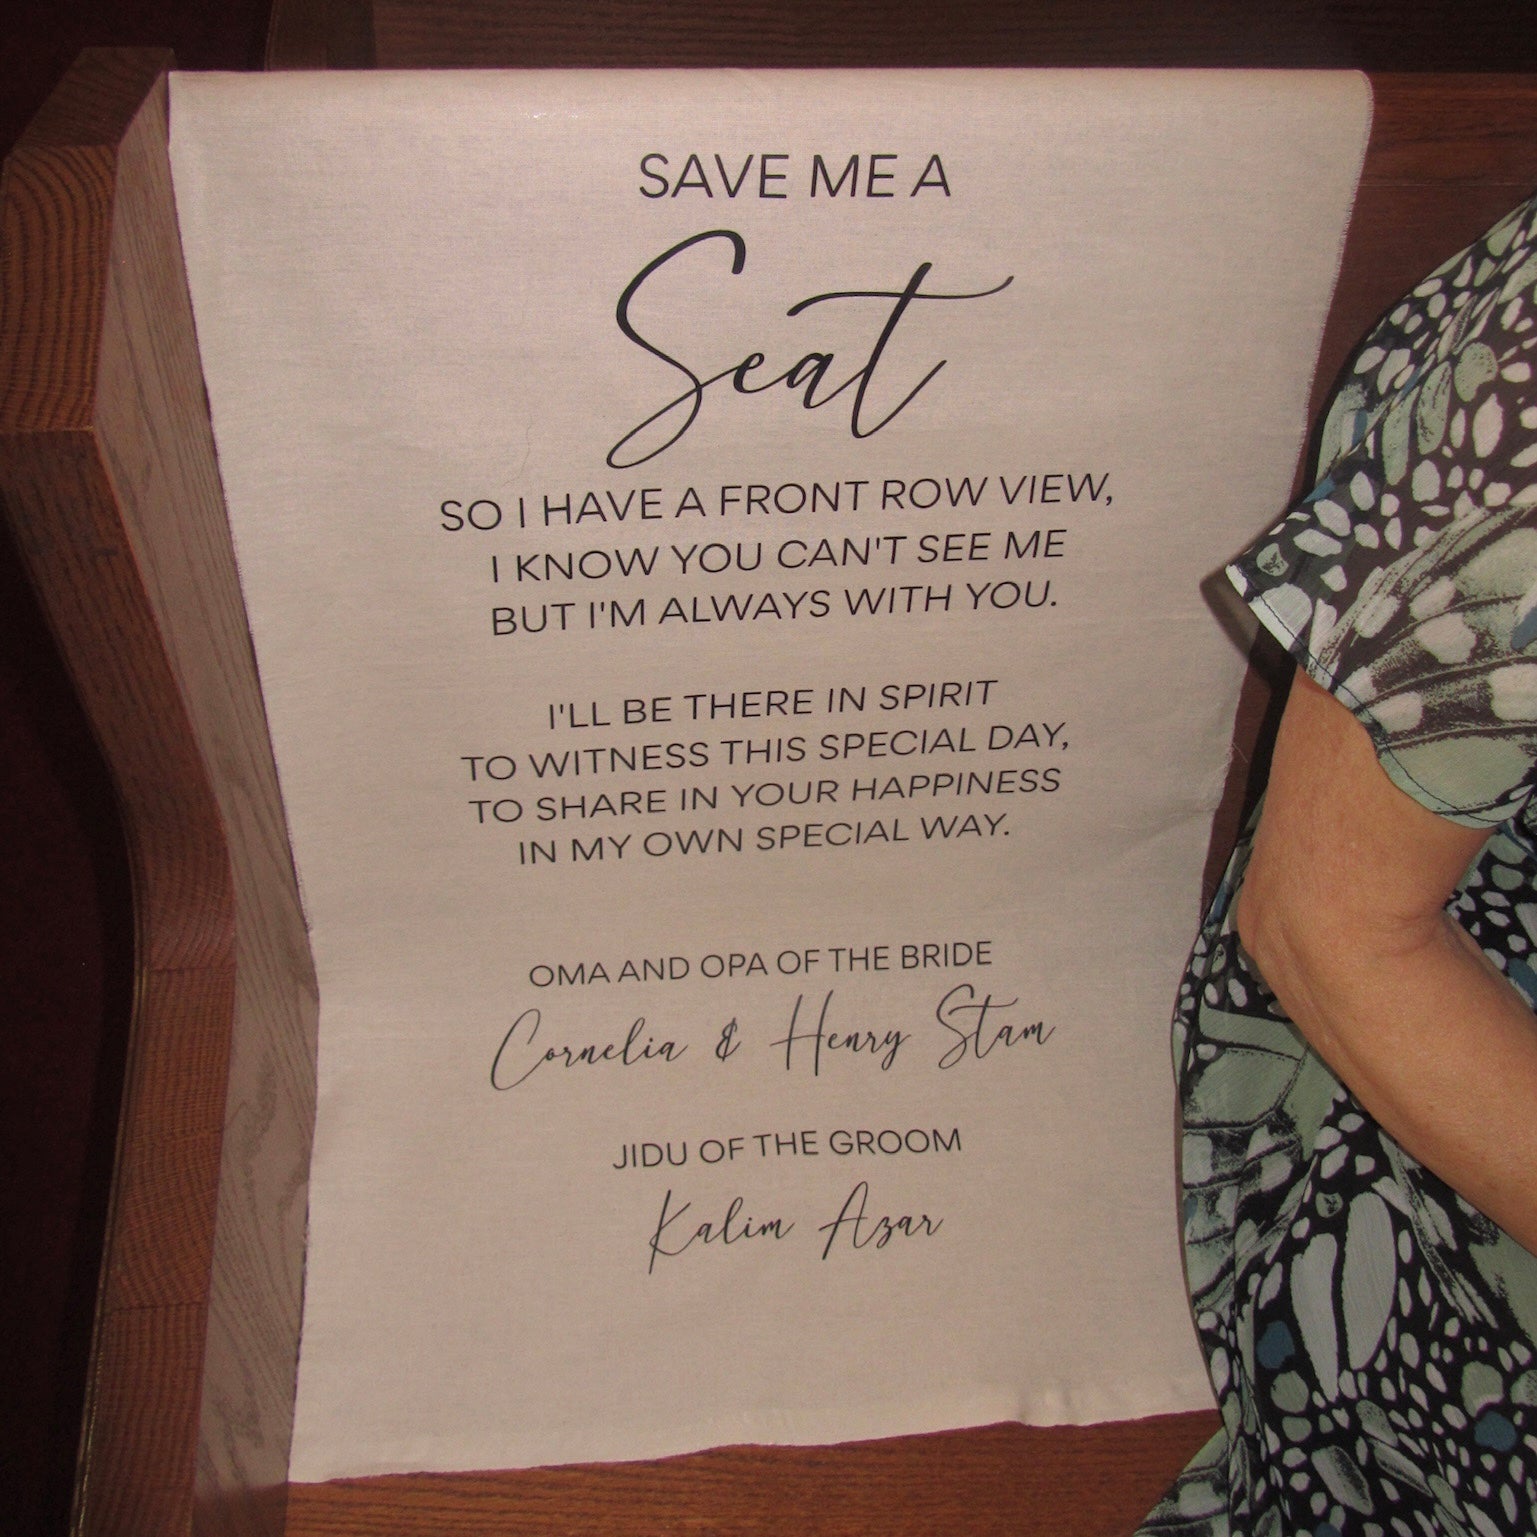 SAVE ME A
Seat
SO I HAVE A FRONT ROW VIEW,
I KNOW YOU CAN'T SEE ME
BUT I'M ALWAYS WITH YOU.
I'LL BE THERE IN SPIRIT
TO WITNESS THIS SPECIAL DAY,
TO SHARE IN YOUR HAPPINESS
IN MY OWN SPECIAL WAY.
OMA AND OPA OF THE BRIDE
Cornelia & Henry Stam
JIDU OF THE GROOM
Kalim Azar